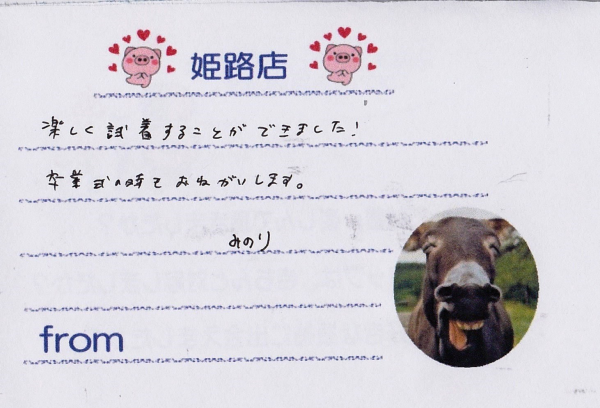 姫路店
楽しく試着することができました!
卒業式の時もおねがいします。
みのり
from